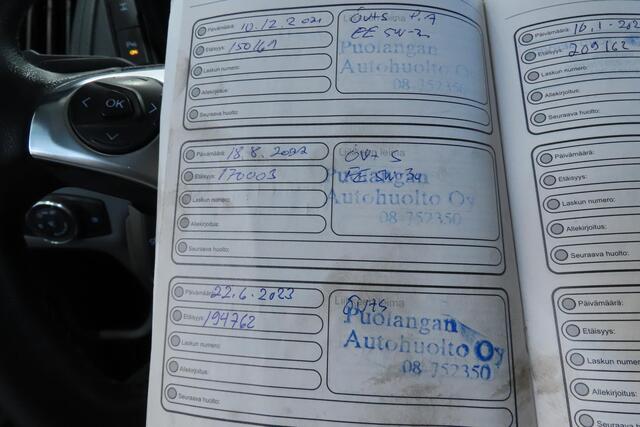 OK
Päivämäärä: 10.12.2021
Etäisyys: 150161
Laskun numero:
Allekirjoitus:
Seuraava huolto:
Liikkeen leima
ÖV+S
Puolangan
Autohuolto Oy
08-752350
Päivämäärä: 18.8.2022
Etäisyys: 170003
Laskun numero:
Allekirjoitus:
Seuraava huolto:
ÖV+S
Puolangan
Autohuolto Oy
08-752350
Päivämäärä: 22.6.2023
Etäisyys: 194762
Laskun numero:
Allekirjoitus:
Seuraava huolto:
ÖV+S
Puolangan
Autohuolto Oy
08-752350
Päivämäärä:
Etäisyys: 209162
Laskun numero:
Allekirjoitus:
Seuraava huolto:
Päivämäärä:
Etäisyys:
Laskun numero:
Allekirjoitus:
Seuraava huolto:
Päivämäärä:
Etäisyys:
Laskun numero:
Allekirjoitus:
Seuraava huolto: